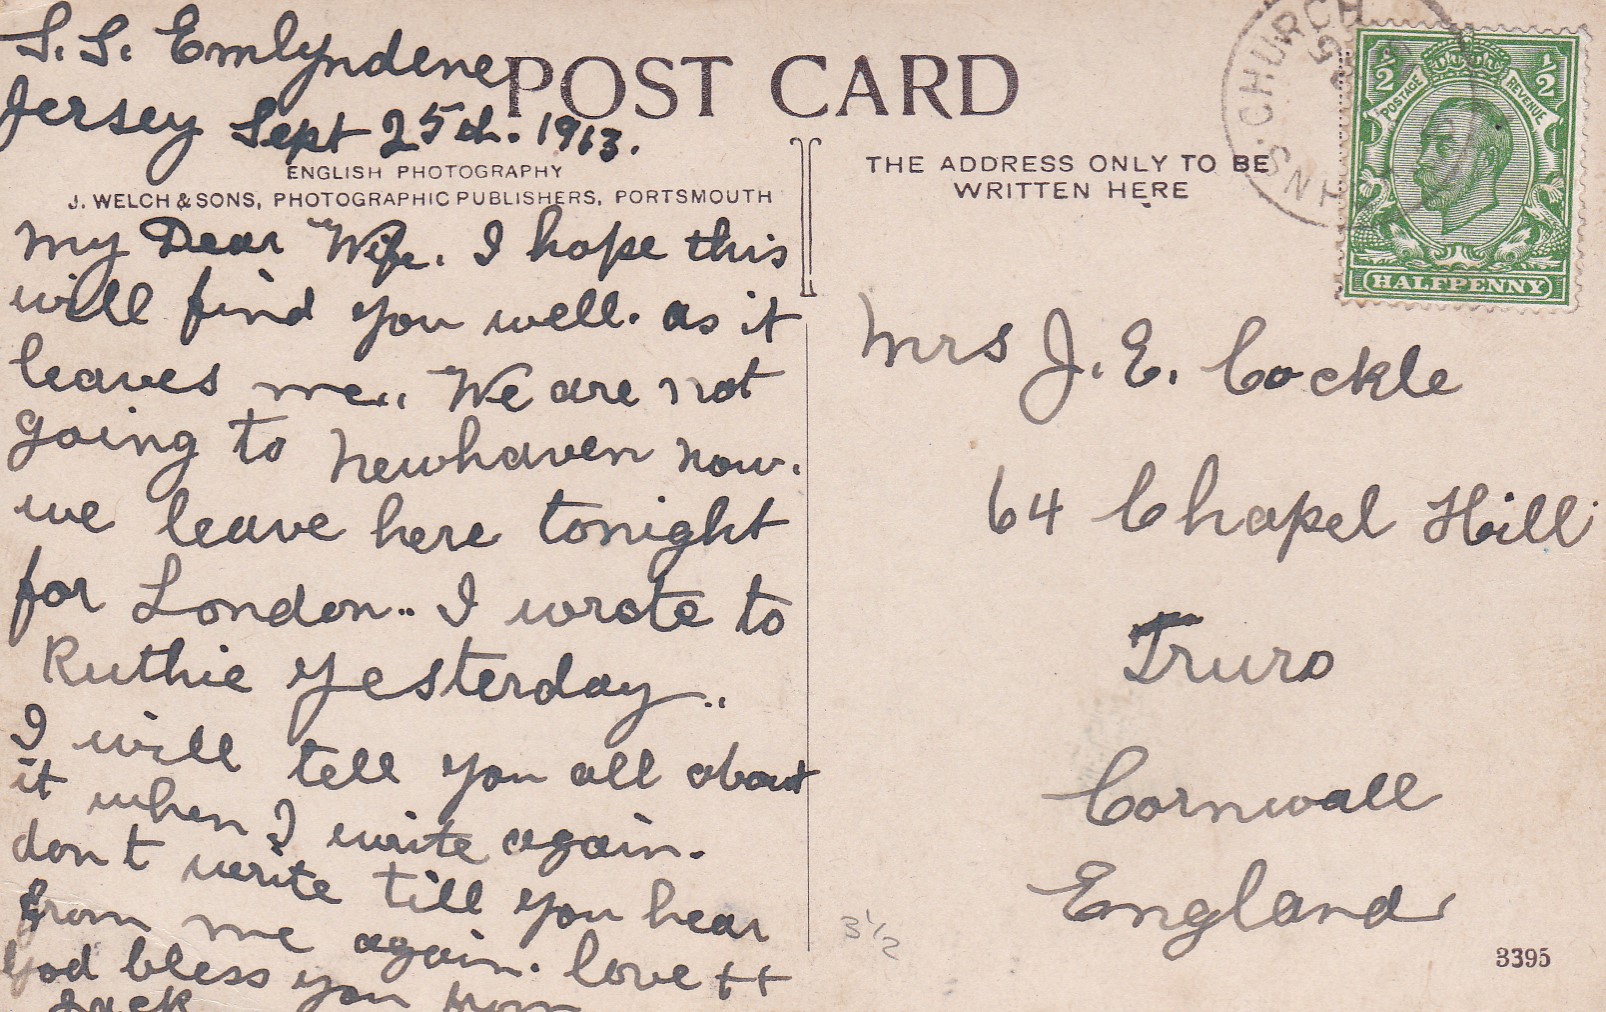 S.S. Emlyndene
Jersey Sept 25th. 1913.
POST CARD
ENGLISH PHOTOGRAPHY
J. WELCH & SONS, PHOTOGRAPHIC PUBLISHERS, PORTSMOUTH
My Dear Wife. I hope this
will find you well. as it
leaves me.. We are not
going to Newhaven now.
we leave here tonight
for London.. I wrote to
Ruthie yesterday..
I will tell you all about
it when I write again.
don t write till you hear
from me again. love ++
God bless you from
Jack
THE ADDRESS ONLY TO BE
WRITTEN HERE
CHURCH
½ ½
POSTAGE REVENUE
HALFPENNY
Mrs J. E. Cockle
64 Chapel Hill
Truro
Cornwall
England
3½
3395